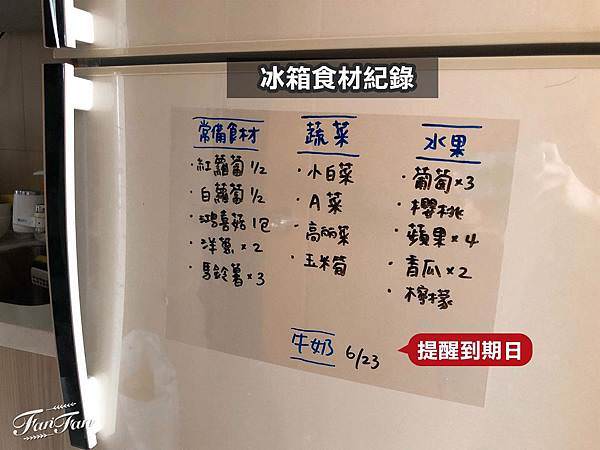 冰箱食材紀錄
常備食材
·紅蘿蔔 1/2
·白蘿蔔 1/2
·鴻喜菇 1包
·洋蔥 × 2
·馬鈴薯 × 3
蔬菜
·小白菜
·A菜
·高麗菜
·玉米筍
水果
·葡萄×3
·櫻桃
·蘋果×4
·青瓜×2
·檸檬
牛奶 6/23
提醒到期日
FanFan